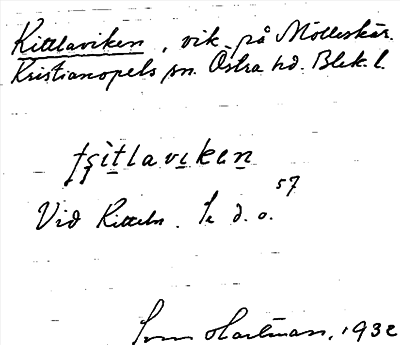 Kittlaviken, vik på Mölleskär.
Kristianopels sn. Östra hd. Blek. l.
tʂìtlaviken
57
Vid Kitteln. Se d. o.
Sven Hartman, 1932